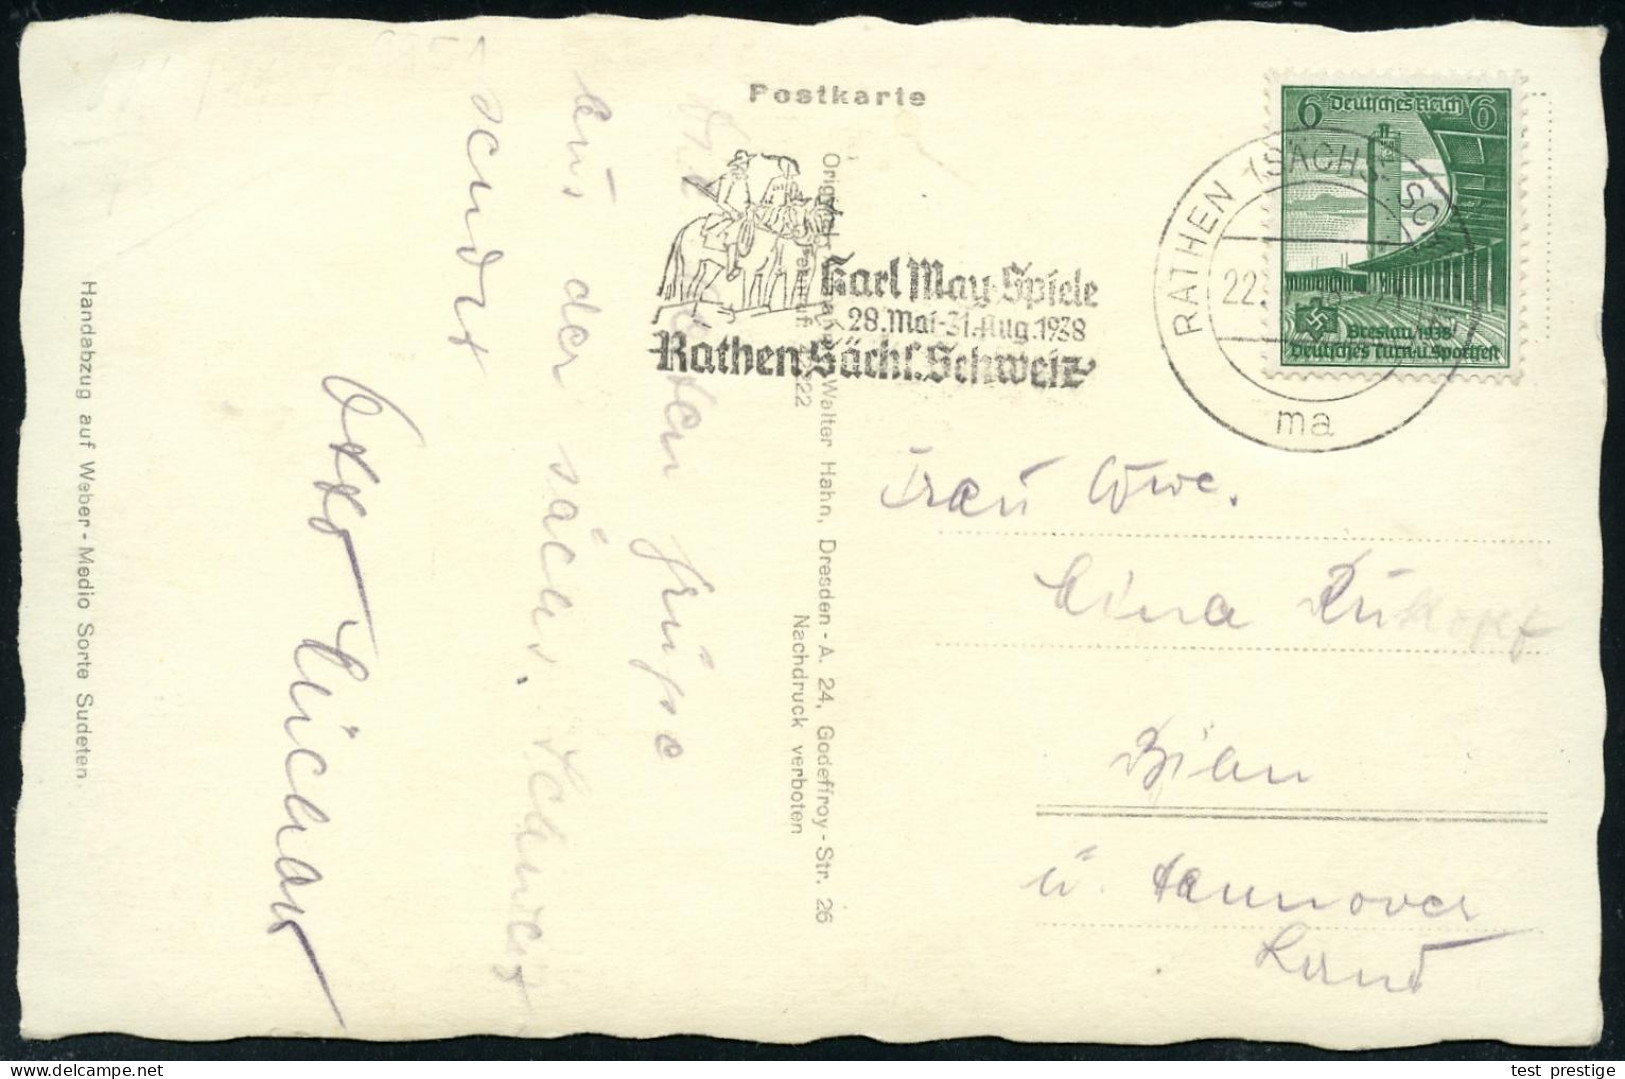 Postkarte
Karl May-Spiele
28. Mai-31. Aug. 1938
Rathen Sächs. Schweiz
RATHEN (SÄCHS.
22.
ma
6 Deutsches Reich 6
Breslau 1938
Deutsches Turn- u. Sportfest
Walter Hahn, Dresden - A. 24, Godeffroy - Str. 26
Nachdruck verboten
Handabzug auf Weber - Medio Sorte Sudeten
Grüsse
aus der sächs. Schweiz
sendet
Otto
Frau Wwe.
Lina
ü. Hannover
Land
test prestige